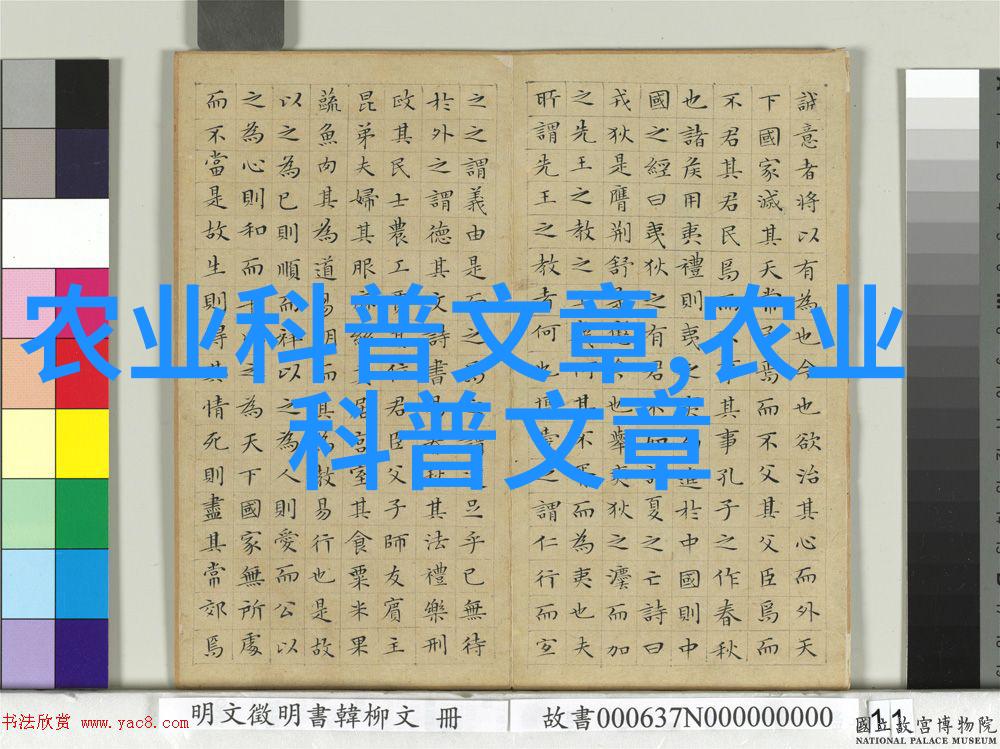 农业科普文章,农业
科普文章
誠意者將以有為也今也欲治其心而外天
下國家滅其天常子焉而不父其父臣焉而
不君其君民焉而不事其事孔子之作春秋
也諸矦用夷禮則夷之進於中國則中
國之經曰夷狄之有君不如諸夏之亡詩曰
戎狄是膺荆舒是也舉夷狄之灋而加
之先王之教之上何其不而為夷也夫
所謂先王之教者何也博愛之謂仁行而宜
之之謂義由是而之足乎已無待
於外之謂德其文詩書易其法禮樂刑
政其民士農工君臣父子師友賓主
昆弟夫婦其服絲其居宮室其食粟米果
蔬魚肉其為道易明而其為教易行也是故
以之為已則順而祥以之為人則愛而公以
之為心則和而之為天下國家無所處
而不當是故生則得其情死則盡其常郊焉
明文徵明書韓柳文 冊
故書000637N000000000
11
國立故宮博物院
NATIONAL PALACE MUSEUM
书法欣赏 www.yac8.com